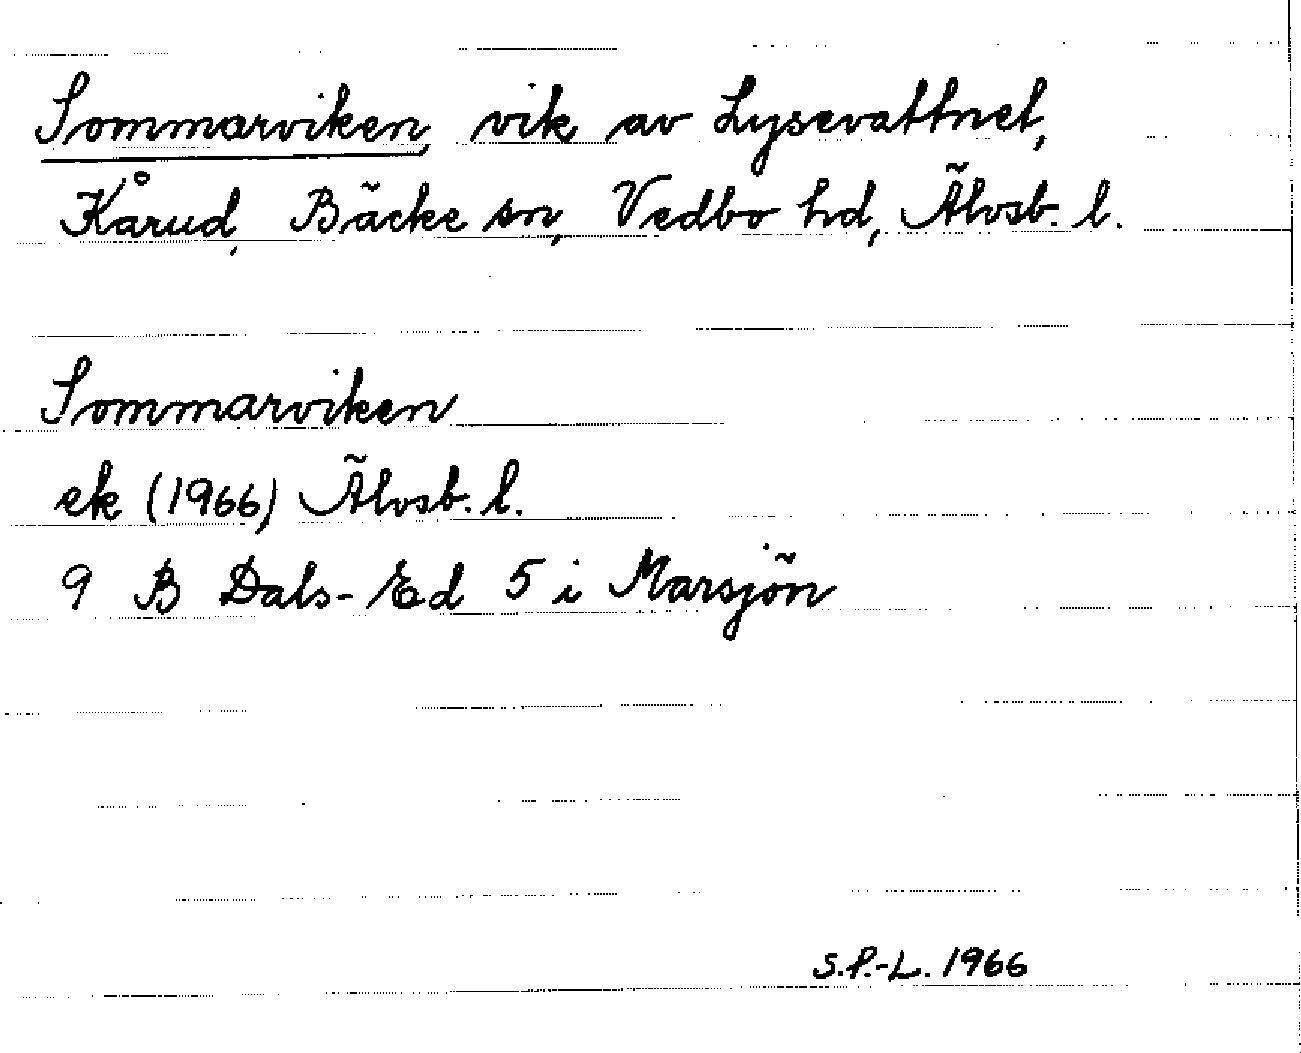 Sommarviken, vik av Lysevattnet,
Kårud, Bäcke sn, Vedbo hd, Älvsb. l.
Sommarviken
ek (1966) Älvsb. l.
9 B Dals-Ed 5 i Marsjön
S.P.-L. 1966